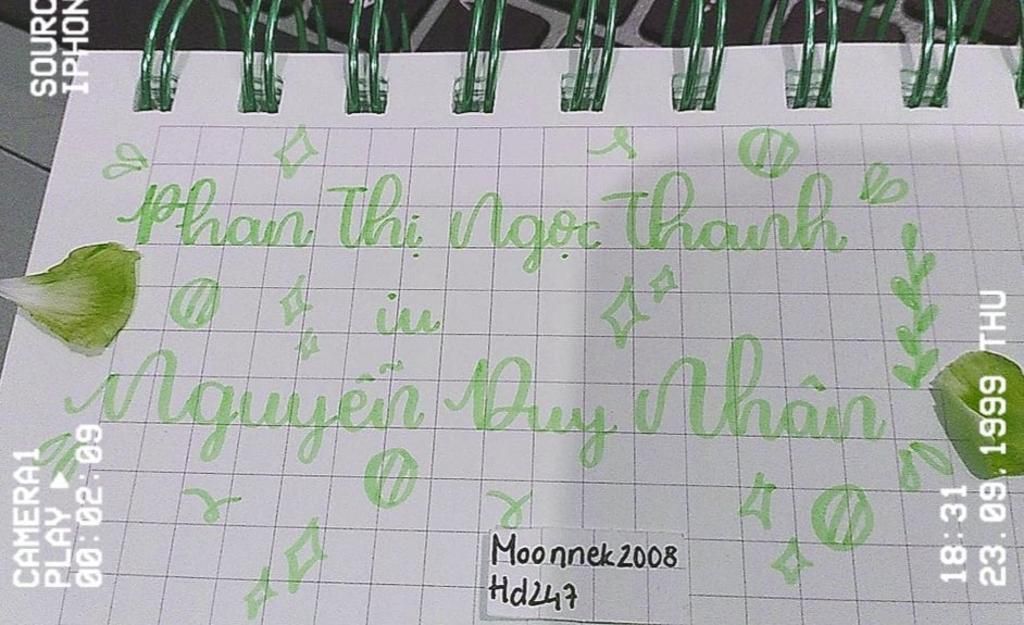 SOURC
IPHON
Phan Thị Ngọc Thanh
iu
Nguyễn Duy Nhân
Moonnek2008
Hd247
CAMERA1
PLAY ▶
00:02:09
18:31
23.09.1999 THU